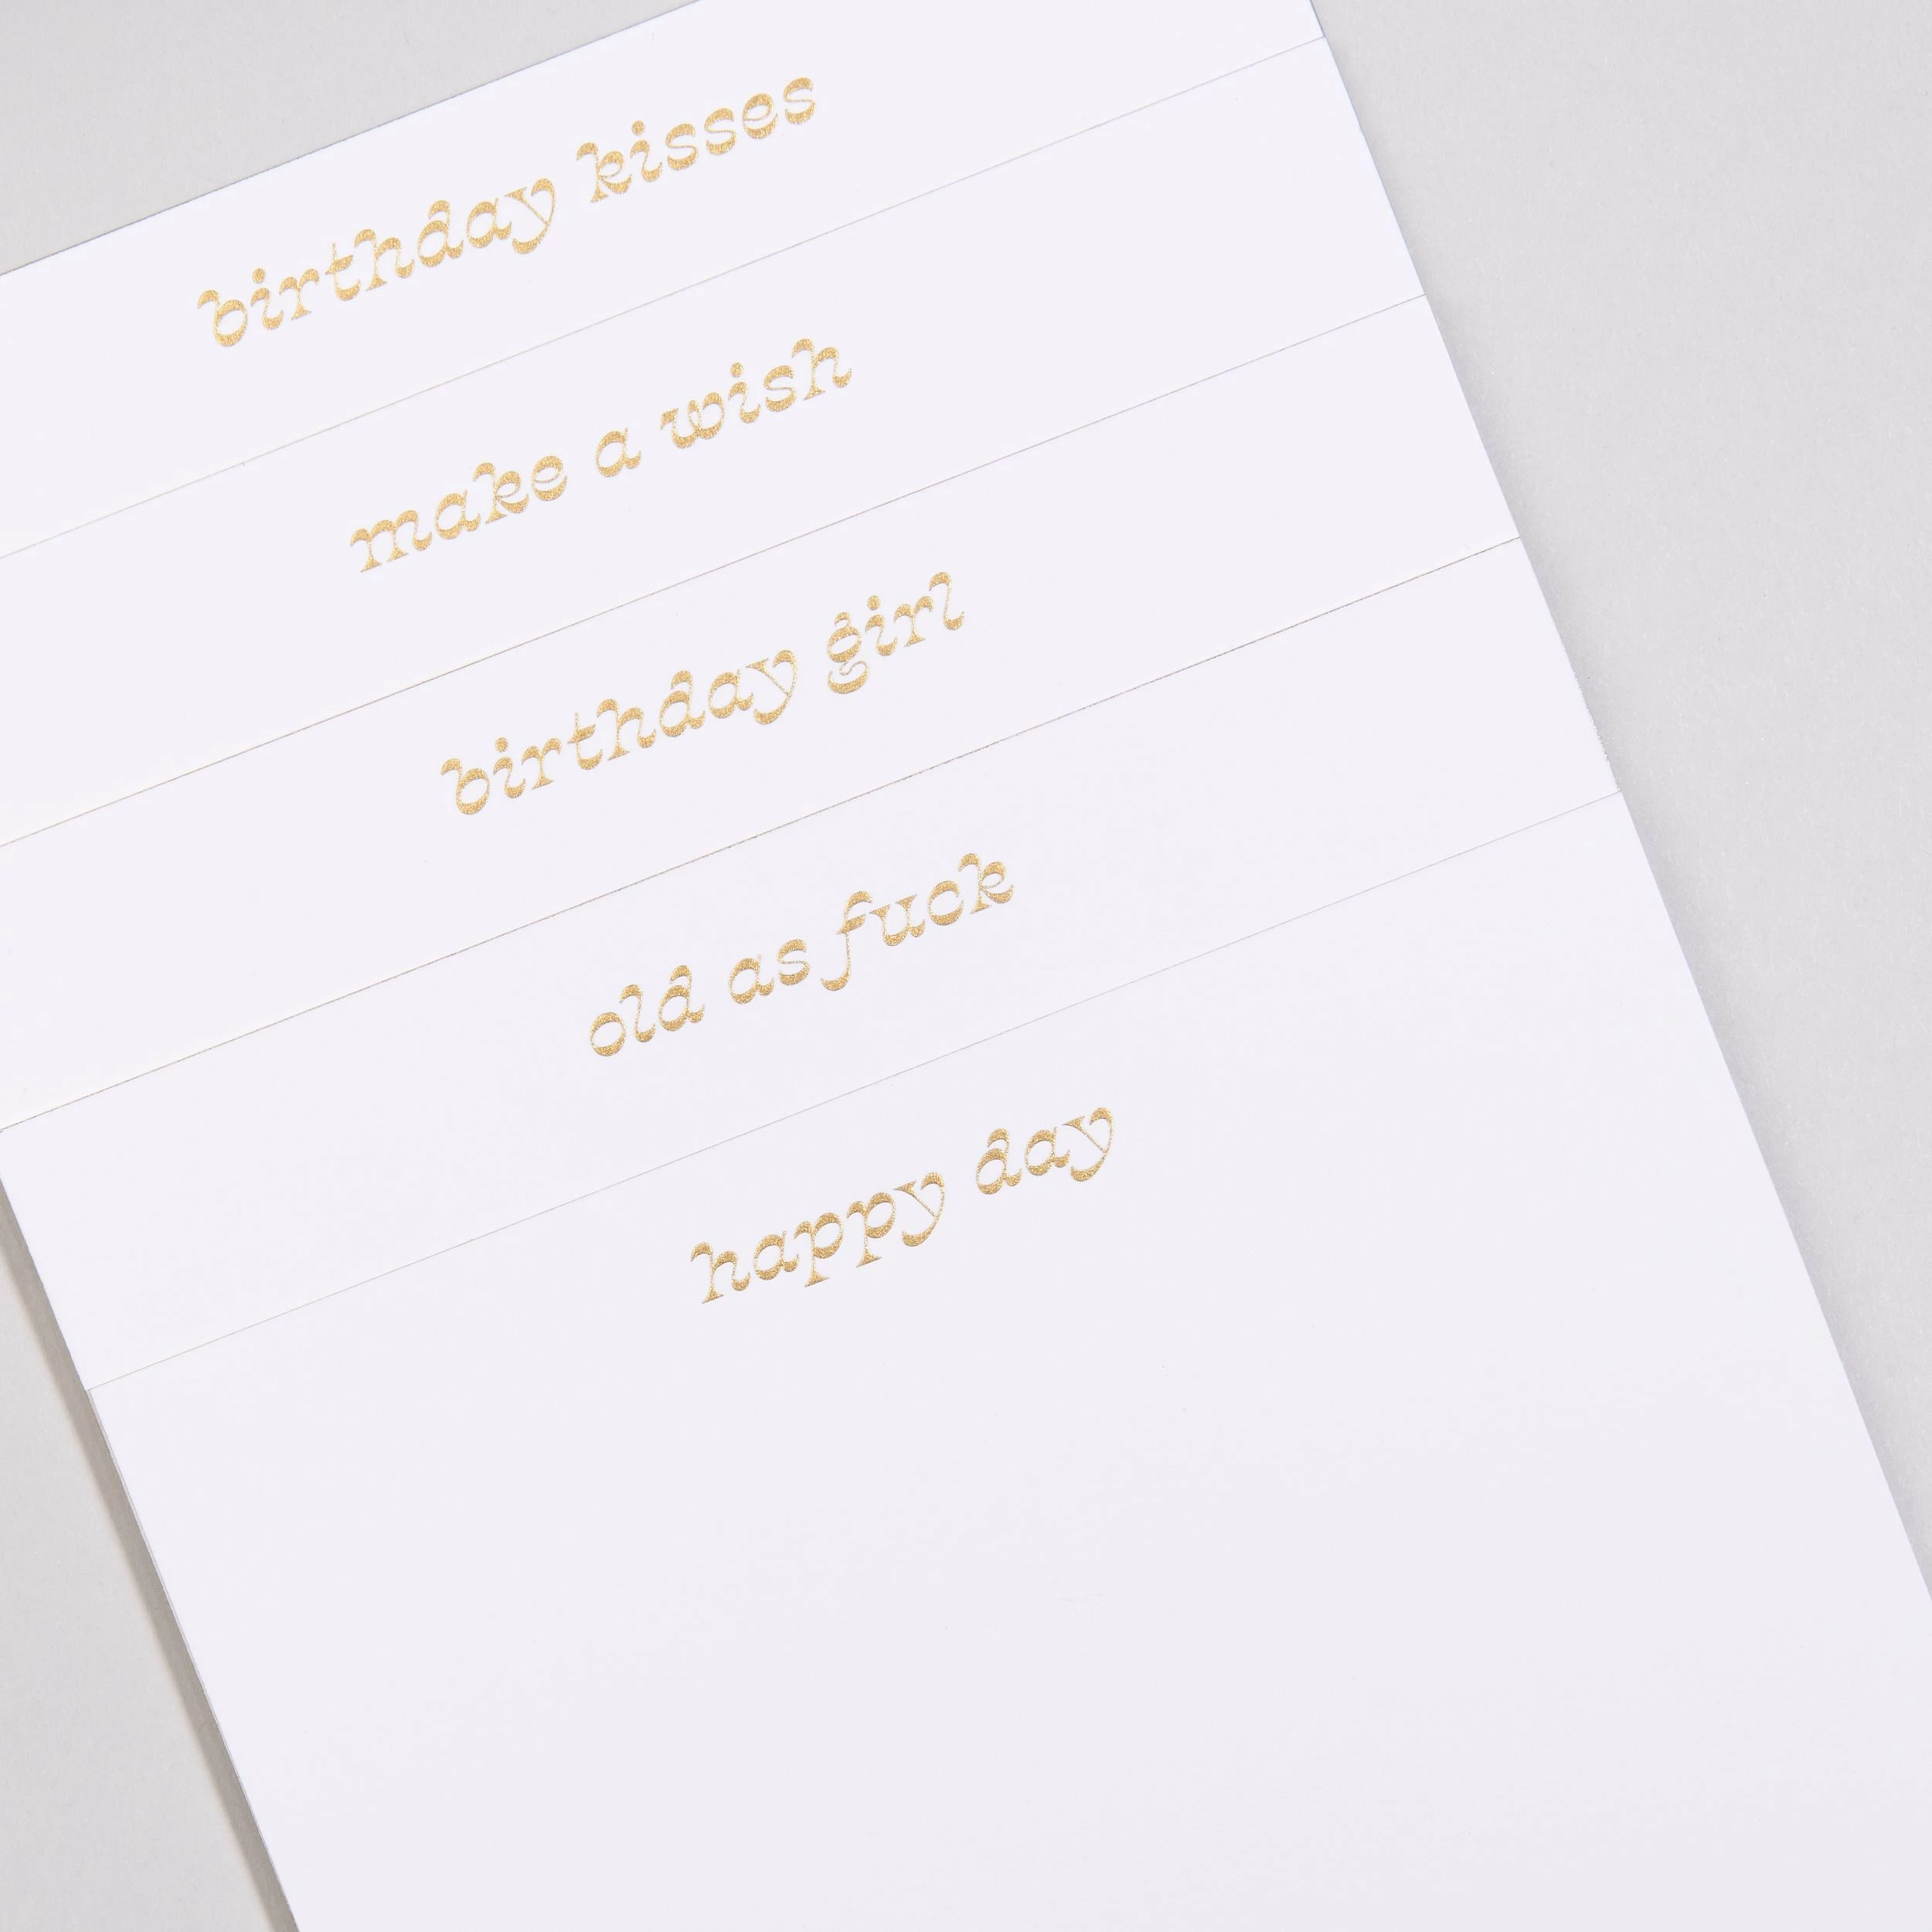 birthday kisses
make a wish
birthday girl
old as fuck
happy day